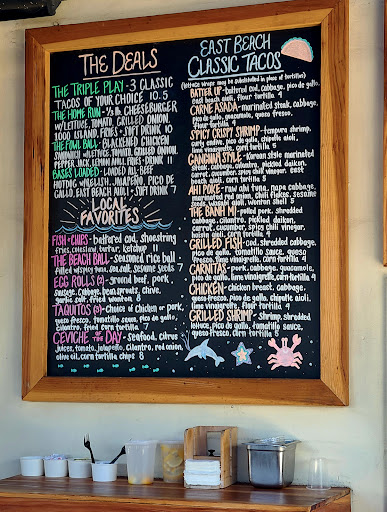 THE DEALS
THE TRIPLE PLAY - 3 CLASSIC
TACOS OF YOUR CHOICE 10.5
THE HOME RUN - 1/2 lb. CHEESEBURGER
W/ LETTUCE, TOMATO, GRILLED ONION,
1000 ISLAND, FRIES + SOFT DRINK 10
THE FOWL BALL - BLACKENED CHICKEN
SANDWICH W/ LETTUCE, TOMATO, GRILLED ONION,
PEPPER JACK, LEMON AIOLI, FRIES + DRINK 11
BASES LOADED - LOADED ALL-BEEF
HOTDOG W/ RELISH, JALAPEÑO, PICO DE
GALLO, EAST BEACH AIOLI + SOFT DRINK 7
LOCAL
FAVORITES
FISH + CHIPS - battered cod, shoestring
fries, coleslaw, tartar, ketchup 11
THE BEACH BALL - seasoned rice ball
filled w/ spicy tuna, sesame seeds 7
EGG ROLLS (2) - sliced beef, pork
sausage, cabbage, bean sprouts, chive,
garlic salt, fried wonton 8
TAQUITOS (3) - choice of chicken or pork,
queso fresco, tomatillo sauce, pico de gallo,
cilantro, fried corn tortilla 7
CEVICHE OF THE DAY - Seafood, citrus
juices, tomato, jalapeño, cilantro, red onion,
olive oil, corn tortilla chips 8
EAST BEACH
CLASSIC TACOS
(lettuce wraps may be substituted in place of tortillas)
BATTER UP - battered cod, cabbage, pico de gallo,
east beach aioli, flour tortilla 4
CARNE ASADA - marinated steak, cabbage,
pico de gallo, guacamole, queso fresco,
flour tortilla 4
SPICY CRISPY SHRIMP - tempura shrimp,
curly endive, pico de gallo, chipotle aioli,
lime vinaigrette, corn tortilla 5
GANGNAM STYLE - Korean style marinated
steak, cabbage, cilantro, pickled daikon,
carrot, cucumber, spicy chili vinegar, east
beach aioli, corn tortilla 5
AHI POKE - raw ahi tuna, napa cabbage,
marinated red onion, chili flakes, sesame
seeds, wasabi aioli, wonton shell 5
THE BANH MI - pulled pork, shredded
cabbage, cilantro, pickled daikon,
carrot, cucumber, spicy chili vinegar,
hoisin aioli, corn tortilla 4
GRILLED FISH - cod, shredded cabbage,
pico de gallo, tomatillo sauce, queso
fresco, lime vinaigrette, corn tortilla 4
CARNITAS - pork, cabbage, guacamole,
pico de gallo, lime vinaigrette, corn tortilla 4
CHICKEN - chicken breast, cabbage,
queso fresco, pico de gallo, chipotle aioli,
lime vinaigrette, flour tortilla 4
GRILLED SHRIMP - Shrimp, shredded
lettuce, pico de gallo, tomatillo sauce,
queso fresco, corn tortilla 5